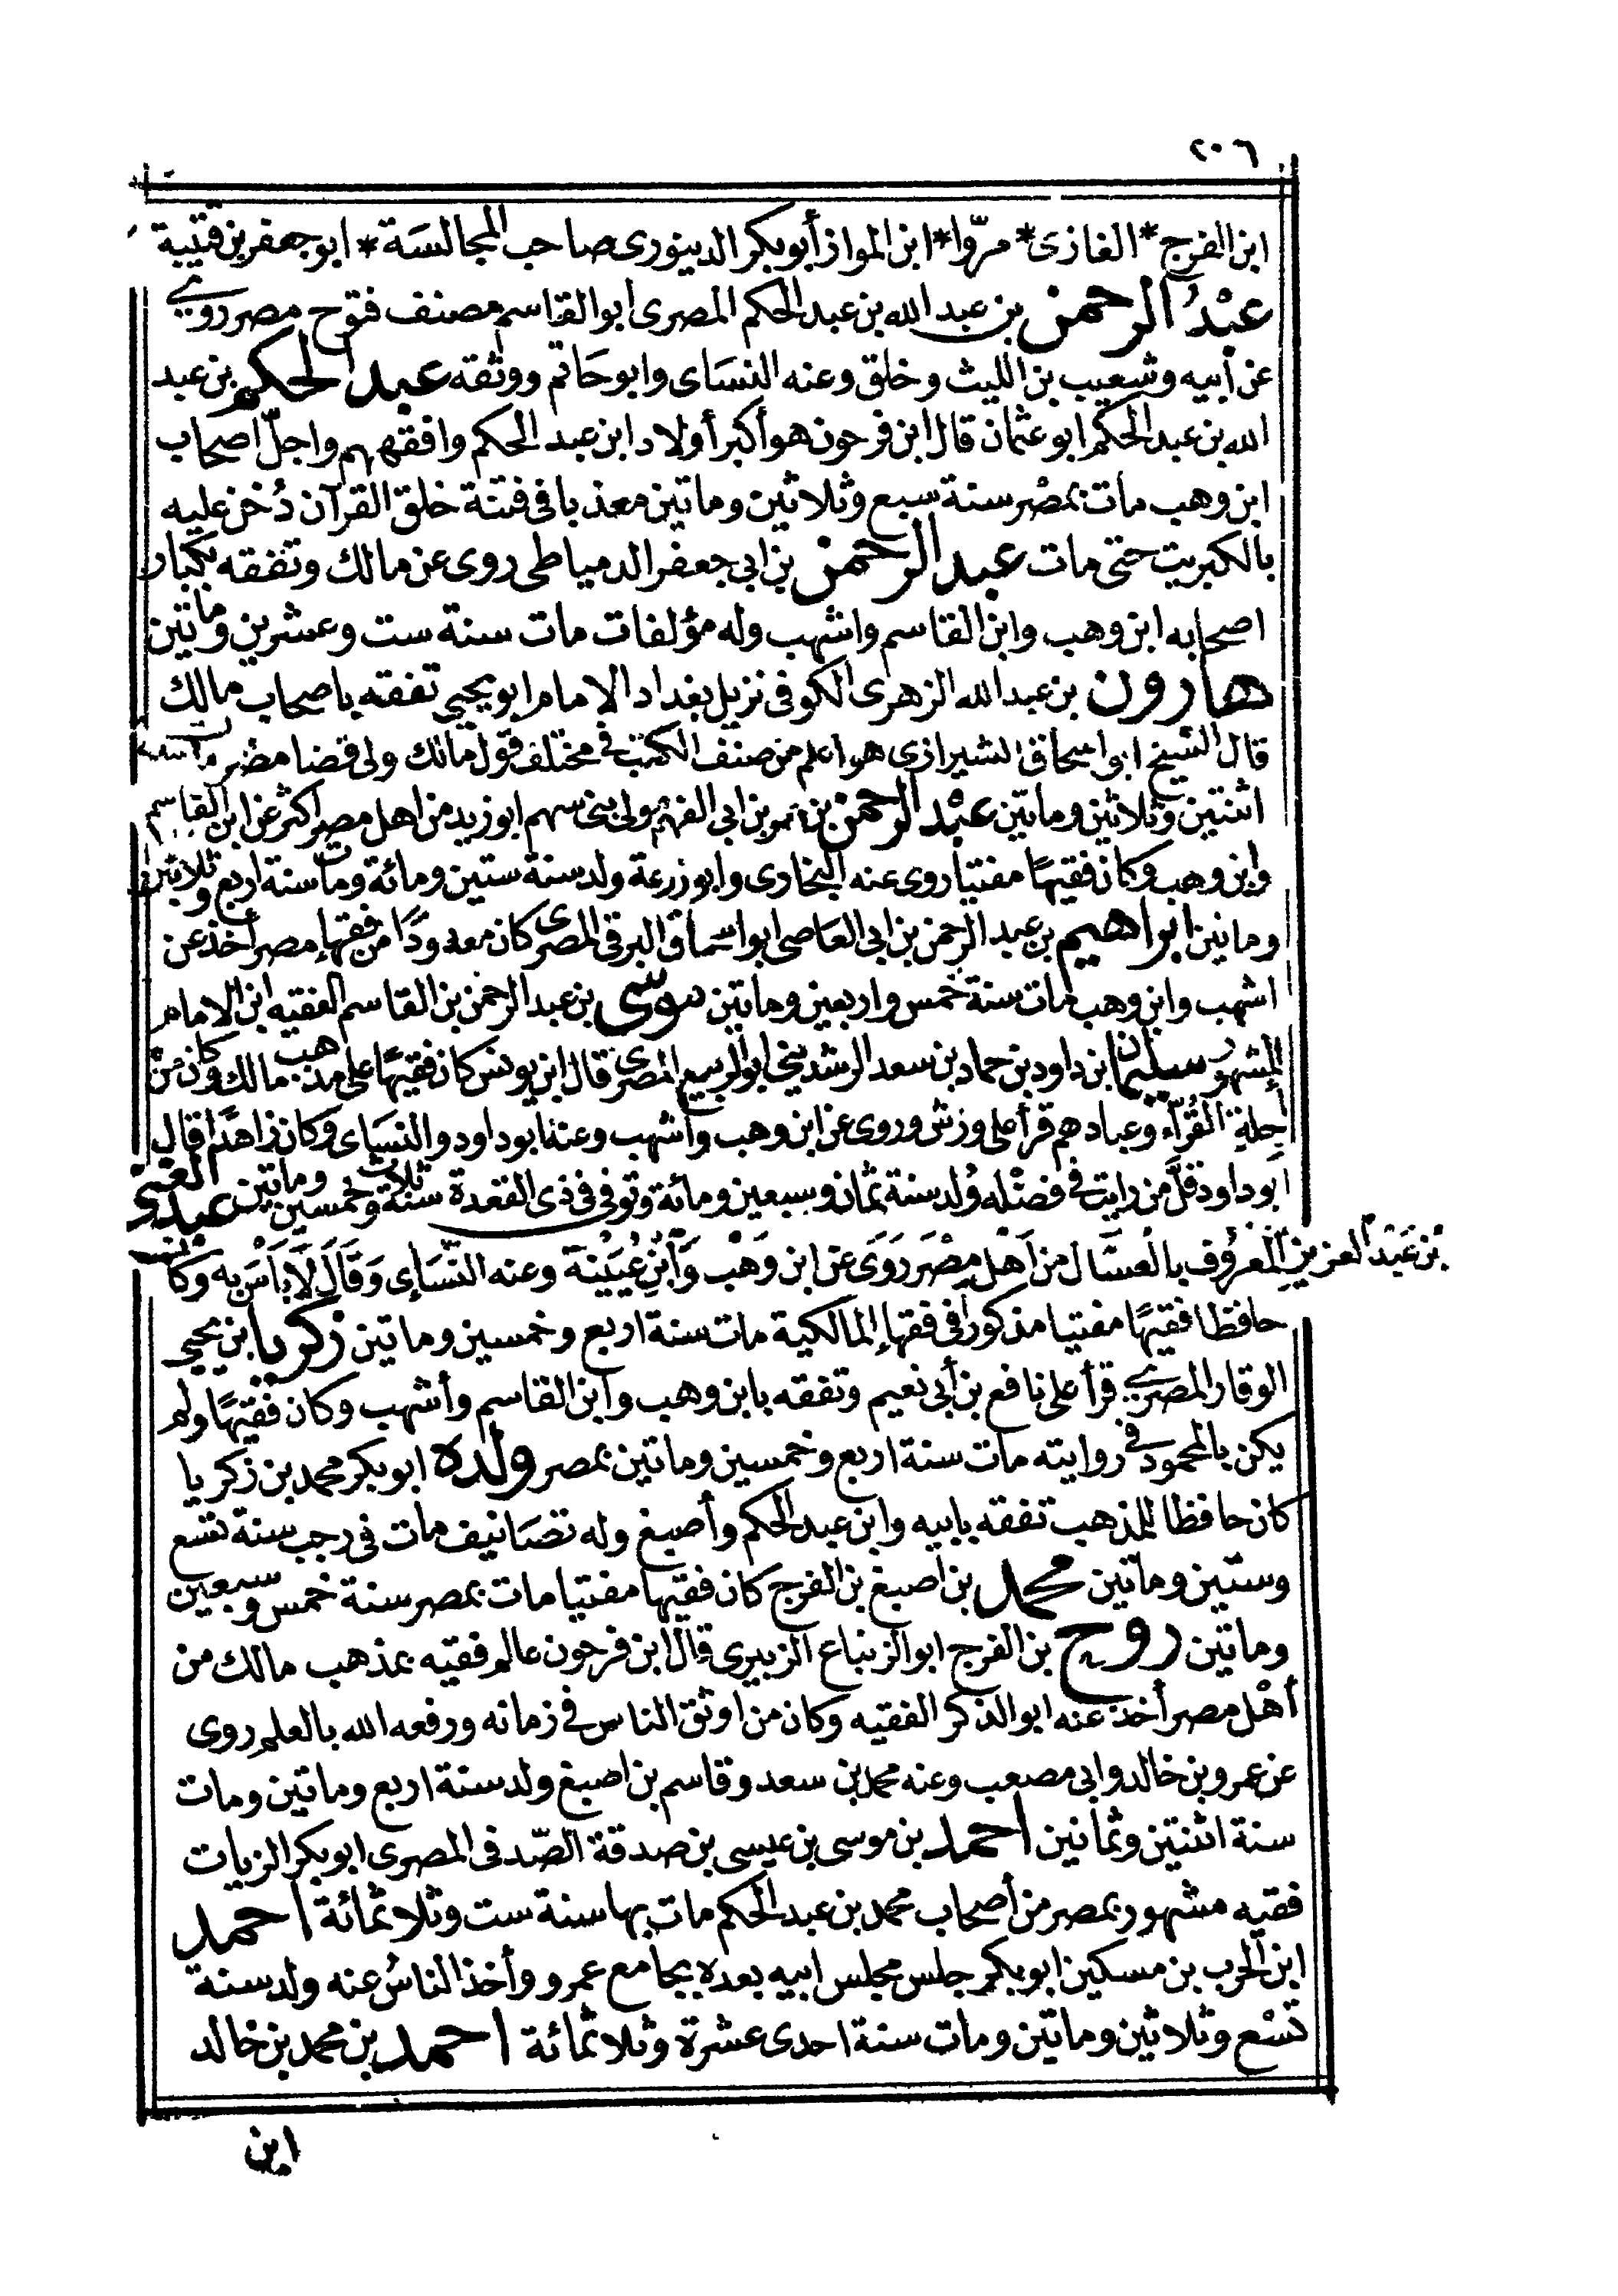 ٢٠٦
ابن الفرج * الغازى * مرّوا * ابن المواز أبوبكر الدينورى صاحب المجالسة * ابو جعفر بن قتيبة
عبْدُ الرحمن بن عبد الله بن عبد الحكم المصرى ابو القاسم مصنف فتوح مصر روى
عن أبيه وشعيب بن الليث وخلق وعنه النساى وابو حاتم ووثقه عبد الحكم بن عبد
الله بن عبد الحكم ابو عثمان قال ابن فرحون هو أكبر أولاد ابن عبد الحكم وافقههم واجلّ اصحاب
ابن وهب مات بمصر سنة سبع وثلاثين وماتين معذبا فى فتنة خلق القرآن دُخن عليه
بالكبريت حتى مات عبد الرحمن بن ابى جعفر الدمياطى روى عن مالك وتفقه بكبار
اصحابه ابن وهب وابن القاسم واشهب وله مؤلفات مات سنة ست وعشرين وماتين
هارون بن عبد الله الزهرى الكوفى نزيل بغداد الامام ابو يحيى تفقه باصحاب مالك
قال الشيخ ابو اسحاق الشيرازى هو اعلم من صنف الكتب فى مختلف قول مالك ولى قضا مصر مات سنة
اثنتين وثلاثين وماتين عبْد الرحمن بن عمر بن ابى الفهم مولى بنى سهم ابو زيد من اهل مصر اكثر عن ابن القاسم
وابن وهب وكان فقيهًا مفتيا روى عنه البخارى وابو زرعة ولد سنة ستين ومائة ومات سنة اربع وثلاثين
وماتين ابراهيم بن عبد الرحمن بن ابى العاصى ابو اسحاق البرقى المصرى كان معدودًا من فقهاء مصر أخذ عن
اشهب وابن وهب مات سنة خمس واربعين وماتين موسى بن عبد الرحمن بن القاسم الفقيه ابن الامام
المشهور سليمان ابن داود بن حماد بن سعد الرشدينى ابو الربيع المصرى قال ابن يونس كان فقيهًا على مذهب مالك وكان منْ
جلة القُرآء وعبادهم قرأ على ورش وروى عن ابن وهب وأشهب وعنه ابو داود والنساى وكان زاهدًا قال
ابو داود قلّ من رايت فى فضله وُلد سنة ثمان وسبعين ومائة وتوفى فى ذى القعدة سنة ثلاث وخمسين وماتين عبد الغنى
بن عَبْد العزيز المعرُوف بالعسّال من اَهْل مِصْر رَوَى عن ابن وَهْب وَابْنِ عُيَيْنة وعنه النّسَاى وَقَالَ لَا بَاسَ به وكان
حافظا فقيهًا مفتيا مذكورا فى فقهاء المالكية مات سنة اربع وخمسين وماتين زكريا بن يحيى
الوقار المصرى قرأ على نافع بن أبى نعيم وتفقه بابن وهب وابن القاسم وأشهب وكان فقيهًا ولم
يكن بالمحمود فى روايته مات سنة اربع وخمسين وماتين بمصر ولده ابو بكر محمد بن زكريا
كان حافظا للمذهب تفقه بابيه وابن عبد الحكم وأصبغ وله تصَانيف مات فى رجب سنة تسع
وستين وماتين محمد بن اصبغ بن الفرج كان فقيها مفتيا مات بمصر سنة خمس وسبعين
وماتين روح بن الفرج ابو الزنباع الزبيرى قال ابن فرحون عالم فقيه بمذهب مالك من
أهْل مصر أخذ عنه ابو الذكر الفقيه وكان من اوثق الناس فى زمانه ورفعه الله بالعلم روى
عن عمرو بن خالد وابى مصعب وعنه محمد بن سعد وقاسم بن اصبغ ولد سنة اربع وماتين ومات
سنة اثنتين وثمانين احمد بن موسى بن عيسى بن صدقة الصّدفى المصرى ابو بكر الزيات
فقيه مشهور بمصر من أصحاب محمد بن عبد الحكم مات بها سنة ست وثلاثمائة احمد
ابن الحرب بن مسكين ابو بكر جلس مجلس ابيه بعده بجامع عمرو وأخذ الناسُ عنه ولد سنة
تسْع وثلاثين وماتين ومات سنة احدى عشرة وثلاثمائة احمد بن محمد بن خالد
ابن